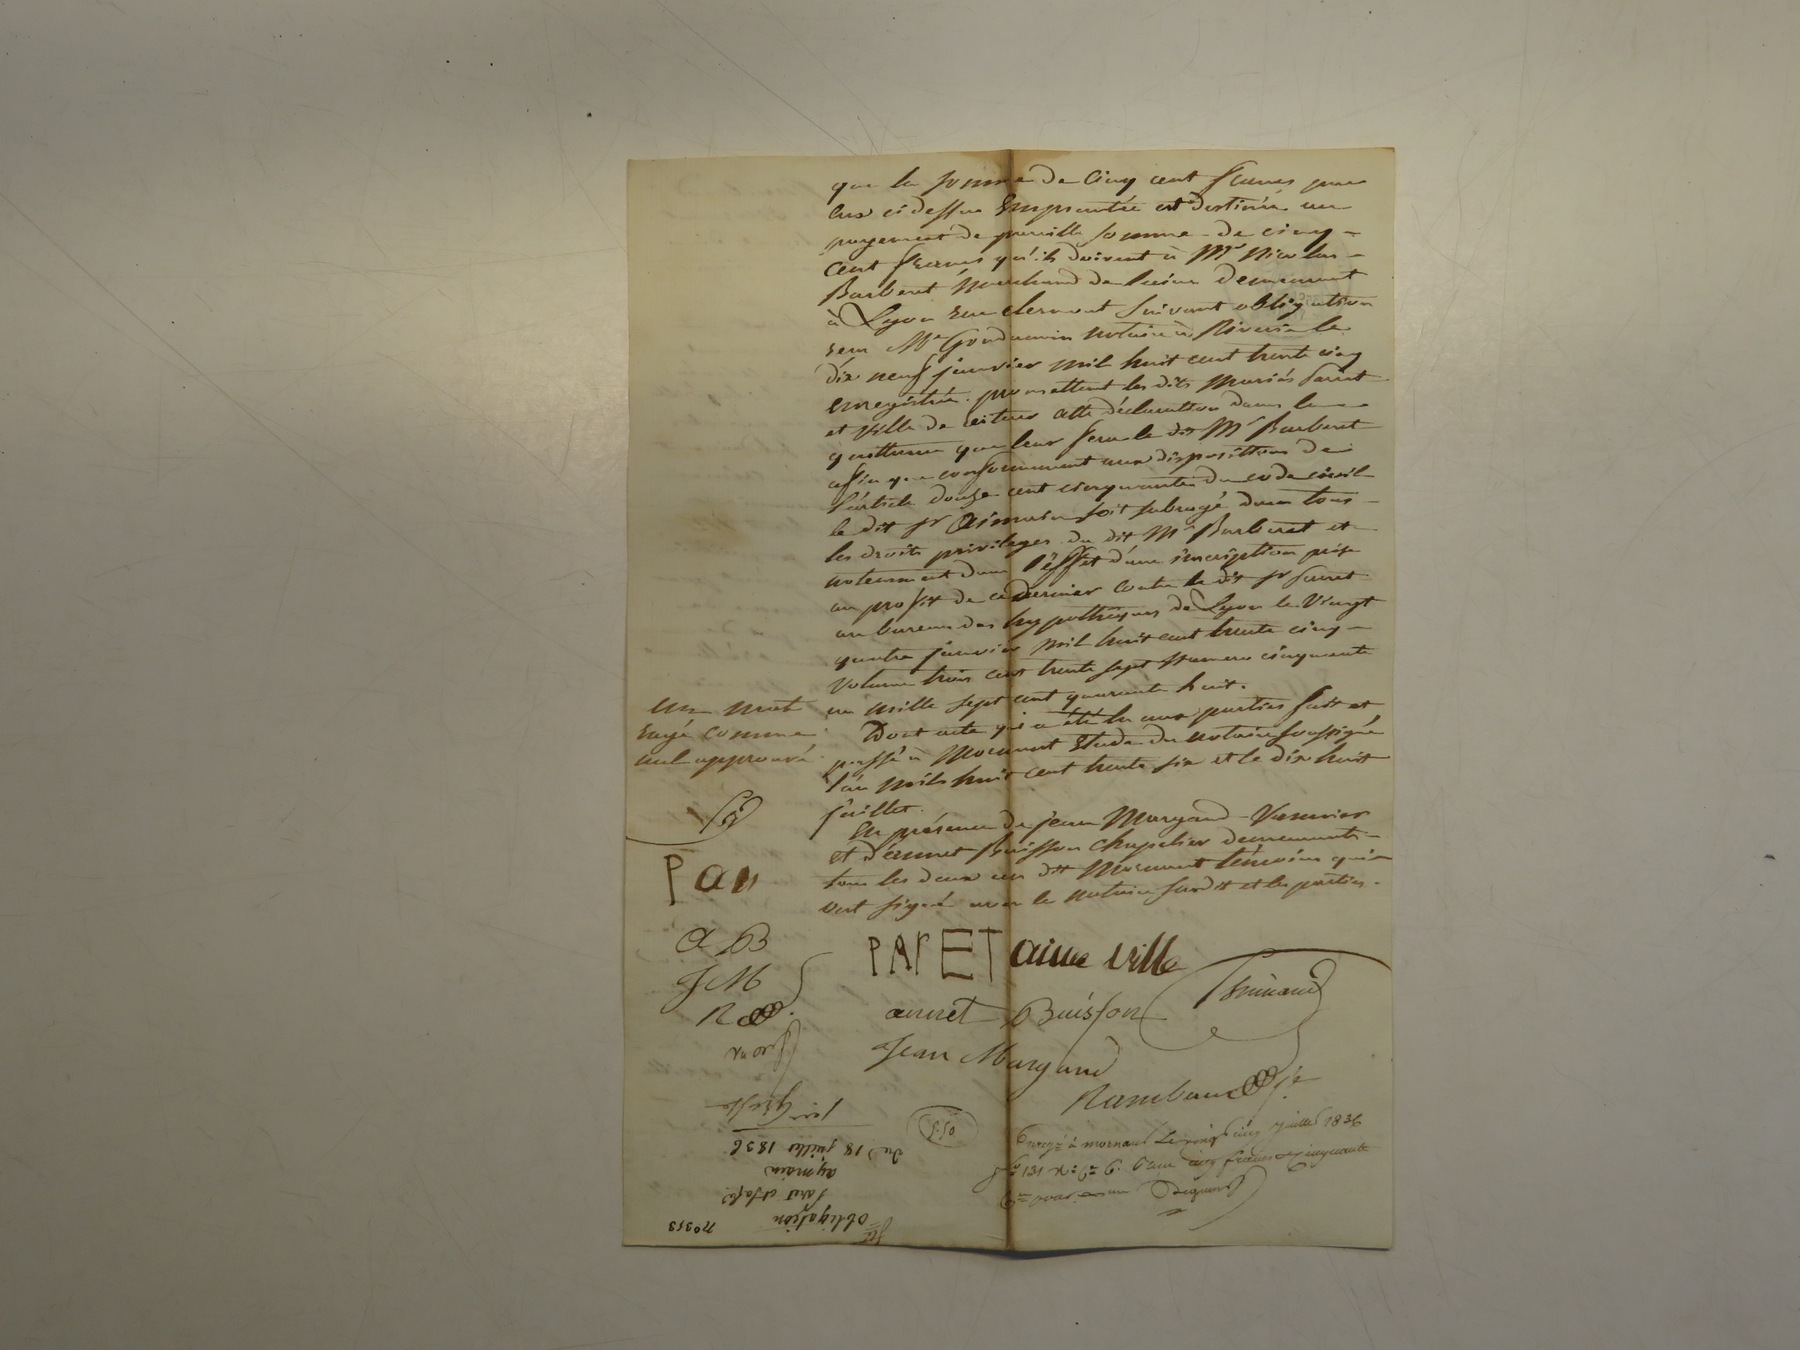 que la somme de Cinq cent francs par
eux ci dessus Empruntée est destinée au
payement de pareille somme de cinq
cent francs qu'ils doivent à Mr Nicolas
Barberet Marchand de demeurant
à Lyon rue clermont suivant obligation
reçu Me notaire à Riverie le
dix neuf janvier mil huit cent trente cinq
enregistrée. promettent les dits Mariés
et Ville de réiterer cette déclaration dans la
quittance que leur fera le dit Mr Barberet
afin que conformement aux dispositions de
l'article douze cent cinquante du code civil
le dit sr soit subrogé dans tous
les droits privileges du dit Mr Barberet et
notamment dans l'effet d'une inscription prise
au profit de ce dernier contre le dit sr
au bureau des hypothèques de Lyon le Vingt
quatre janvier mil huit cent trente cinq
Volume trois cent trente sept Numero cinquante
un mille sept cent quarante huit.
Dont acte qui a été lu aux parties fait et
passé à Mornant Etude du notaire soussigné
l'an mil huit cent trente six et le dix huit
juillet.
En présence de jean Margand
et d'annet Buisson Chapelier demeurants
tous les deux au dit Mornant témoins qui
ont signé avec le notaire susdit et les parties.
un mot
rayé comme
nul approuvé
A B
J M
aime ville
annet Buisson
Jean Margand
Enregé à mornant Le vingt cinq juillet 1836
obligation
du 18 juillet 1836
n° 353